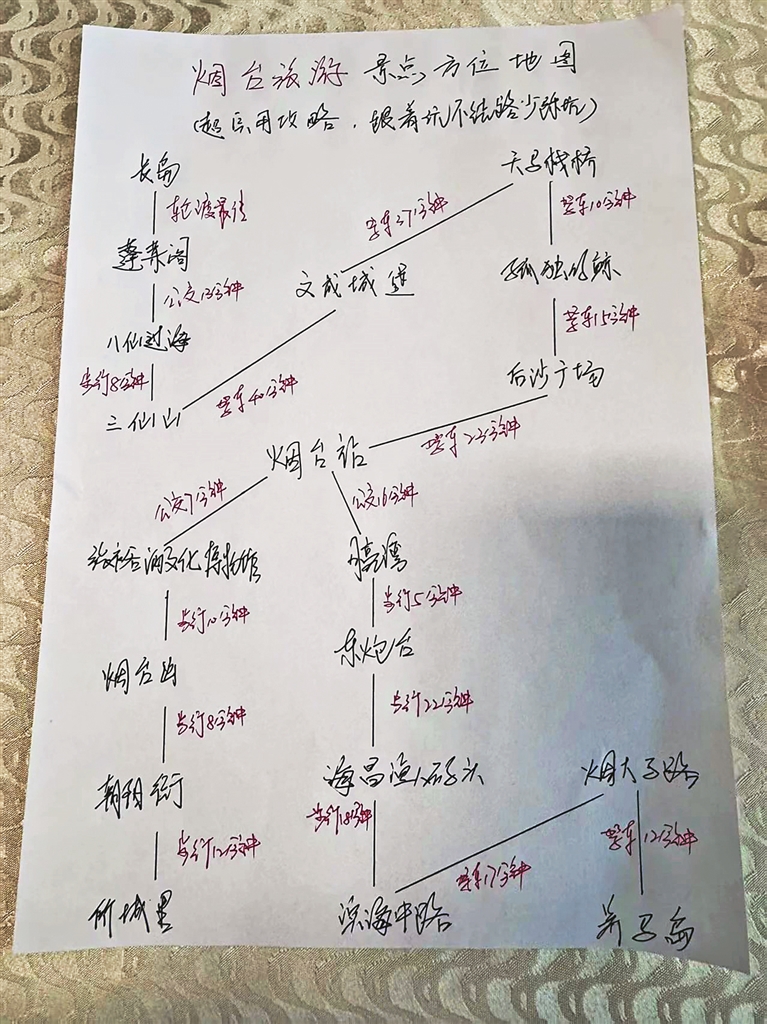 烟台旅游景点方位地图
(超实用攻略，跟着玩不绕路少踩坑)
长岛
天马栈桥
轮渡最佳
驾车37分钟
驾车10分钟
蓬莱阁
文成城堡
孤独的鲸
公交13分钟
驾车15分钟
八仙过海
步行8分钟
驾车40分钟
后沙广场
三仙山
烟台站
驾车23分钟
公交7分钟
公交16分钟
张裕酒文化博物馆
月亮湾
步行10分钟
步行5分钟
烟台山
东炮台
步行8分钟
步行22分钟
朝阳街
海昌渔人码头
烟大子路
步行12分钟
步行18分钟
驾车17分钟
驾车12分钟
所城里
滨海中路
养马岛